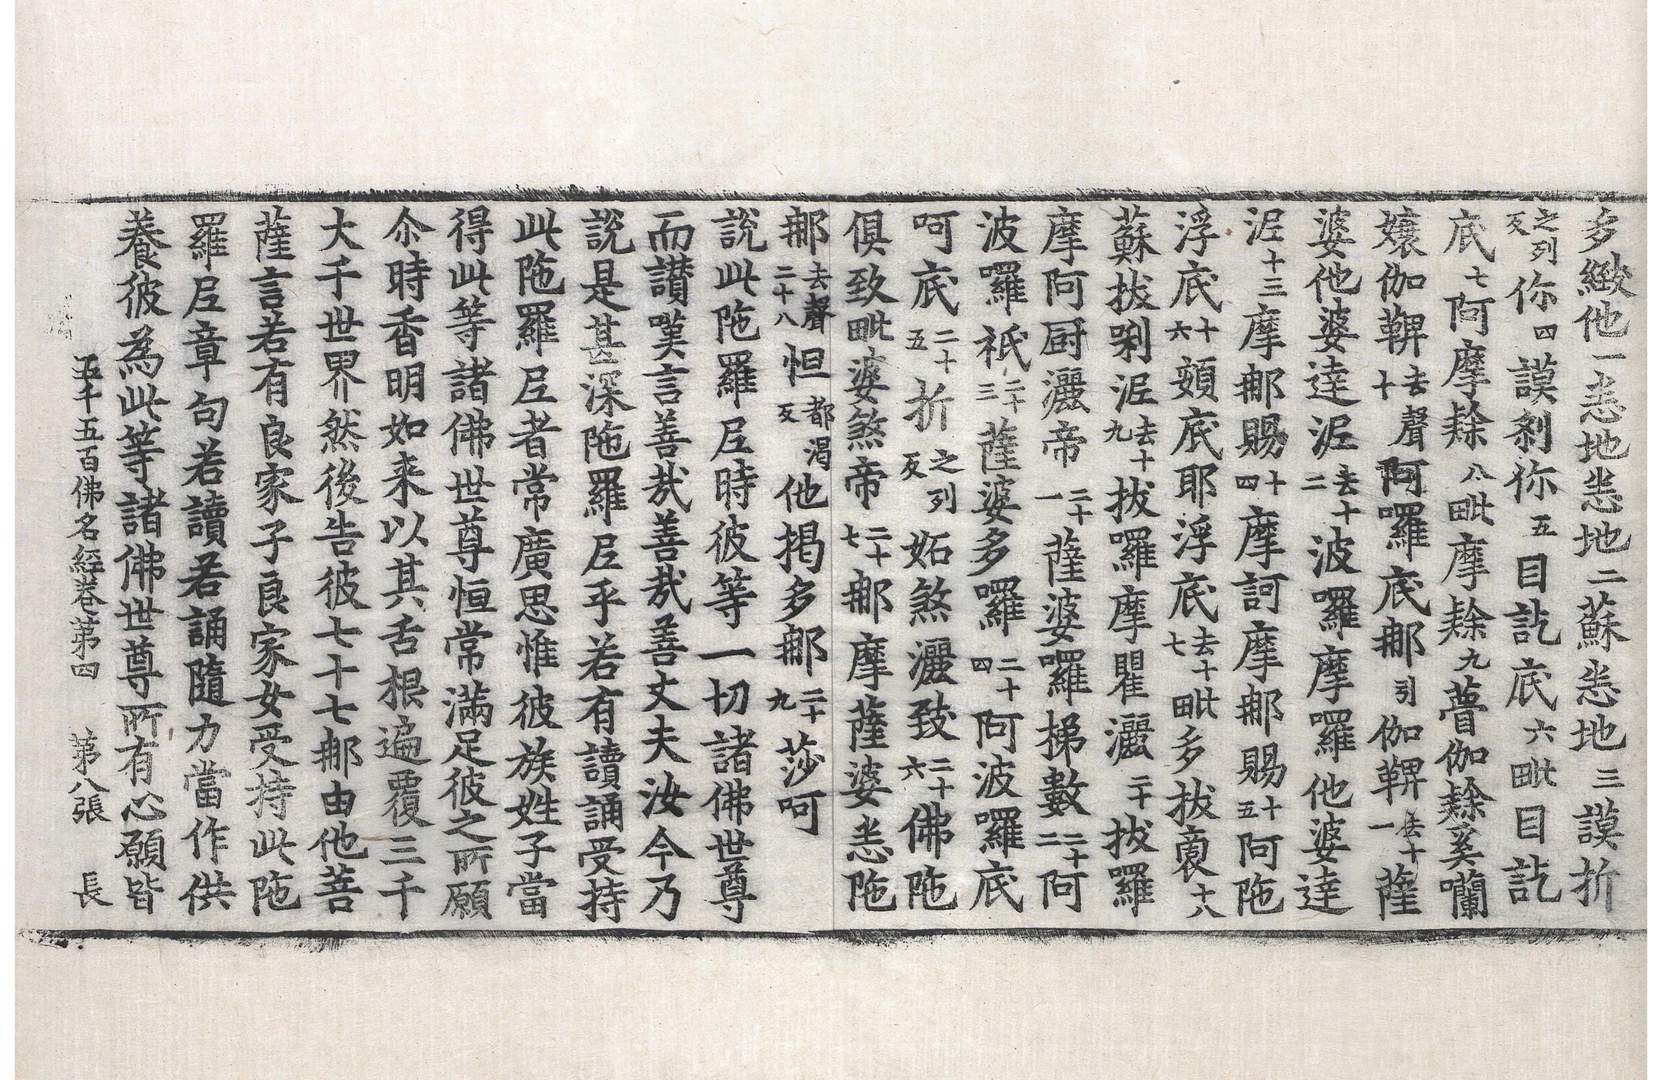 多緻他一悉地悉地二蘇悉地三謨折
之列反你四謨刹你五目訖底六毗目訖
底七阿摩隸八毗摩隸九瞢伽隸奚囒
孃伽鞞去聲十阿囉底郍引伽鞞去十一薩
婆他婆達泥去十二波囉摩囉他婆達
泥十三摩郍賜十四摩訶摩郍賜十五阿陁
浮底十六頞底耶浮底去十七毗多拔裔十八
蘇拔剌泥去十九拔囉摩瞿灑二十拔羅
摩阿厨灑帝二十一薩婆囉梯數二十二阿
波囉祇二十三薩婆多囉二十四阿波囉底
呵底二十五折之列反妬煞灑致二十六佛陁
俱致毗婆煞帝二十七郍摩薩婆悉陁
郍去聲二十八怛都渴反他揭多郍二十九莎呵
說此陁羅尼時彼等一切諸佛世尊
而讃嘆言善哉善哉善丈夫汝今乃
說是甚深陁羅尼乎若有讀誦受持
此陁羅尼者常廣思惟彼族姓子當
得此等諸佛世尊恒常滿足彼之所願
尒時香明如来以其舌根遍覆三千
大千世界然後告彼七十七郍由他菩
薩言若有良家子良家女受持此陁
羅尼章句若讀若誦隨力當作供
養彼為此等諸佛世尊所有心願皆
五千五百佛名經卷苐四　苐八張　長